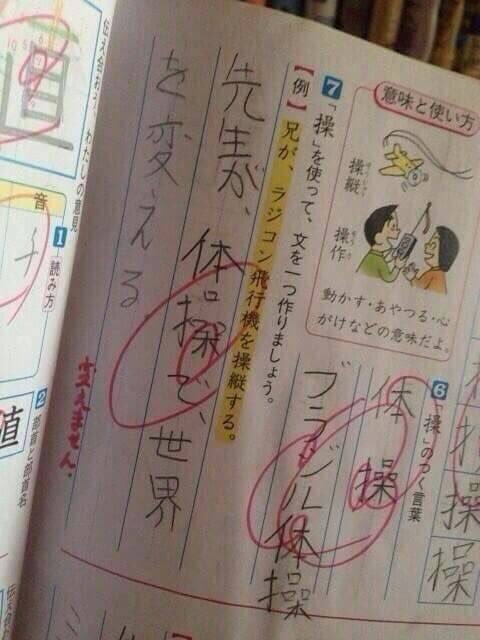 意味と使い方
操縦
そうじゅう
操作
そうさ
動かす・あやつる・心
がけなどの意味だよ。
6 「操」のつく言葉
体操
ブラジル体操
操
操
7 「操」を使って、文を一つ作りましょう。
【例】兄が、ラジコン飛行機を操縦する。
先生が、体操で、世界
を変える
変えません。
伝え合おう
わたしの意見
音
1 読み方
2 部首と部首名
直
値